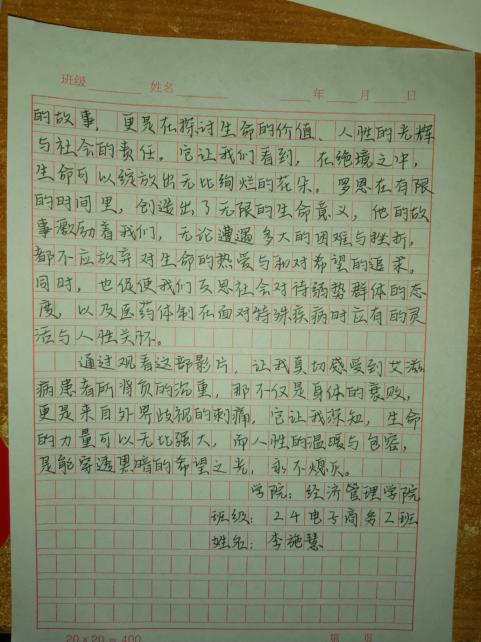 班级 姓名 年 月 日
的故事，更是在探讨生命的价值、人性的光辉
与社会的责任。它让我们看到，在绝境之中，
生命可以绽放出无比绚烂的花朵。罗恩在有限
的时间里，创造出了无限的生命意义，他的故
事激励着我们，无论遭遇多大的困难与挫折，
都不应放弃对生命的热爱与和对希望的追求。
同时，也促使我们反思社会对待弱势群体的态
度，以及医药体制在面对特殊疾病时应有的灵
活与人性关怀。
通过观看这部影片，让我真切感受到艾滋
病患者所背负的沉重，那不仅是身体的衰败，
更是来自外界歧视的刺痛，它让我深知，生命
的力量可以无比强大，而人性的温暖与包容，
是能穿透黑暗的希望之光，永不熄灭。
学院：经济管理学院
班级：24电子商务2班
姓名：李施慧
20×20=400 第 页